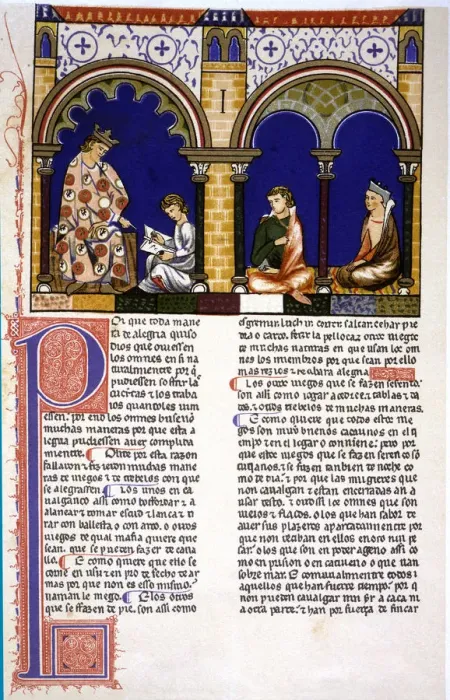 I
Por que toda mane
ra de alegria quiso
Dios que ouiessen
los omnes en si na
turalmientre por q̃
pudiessen soffrir las
cueytas & los traba
ios quandoles uini
essen; por end los omnes buscaron
muchas maneras por que esta a
legria pudiessen auer complida
mientre. Onde por esta razon
fallaron & fizieron muchas mane
ras de iuegos & de trebeios con que
se alegrassen. Los unos en ca
ualgando assi como bofordar & a
lançar & tomar escud & lança & ti
rar con ballesta o con arco. o otros
iuegos de qual manera quiere que
sean. que se pueden fazer de caua
llo. E como quiere que ello se
torne en usu & en pro de fecho de ar
mas por que non es esso mismo;
llaman le iuego. E los otros
que se fazen de pie. son assi como
esgremir. luchar. correr. saltar. echar pie
dra o dardo. ferir la pellota & otros iuegos
de muchas naturas en que usan los om
nes los miembros por que sean por ello
mas rezios & reciban alegria
Los otros iuegos que se fazen seyendo.
son assi como iogar açedrex & tablas & da
dos. & otros trebeios de muchas maneras.
E como quiere que todos estos iue
gos son muy buenos cadaunos en el ti
empo & en el logar o conuiene; pero por
que estos iuegos que se fazen seyendo son
cutianos. & se fazen tan bien de noche co
mo de dia; & por que las mugieres que
non caualgan & estan encerradas an a
usar desto. & otrossi los omnes que son
uieios & flacos. o los que han sabor de
auer sus plazeres apartadamientre por
que non reciban en ellos enoio nin pe
sar. o los que son en poder ageno assi co
mo en prision o en catiuerio o que uan
sobre mar. E comunalmientre todos
aquellos que han fuerte tiempo. por q̃
non pueden caualgar nin yr a caça ni
a otra parte; & han por fuerça de fincar